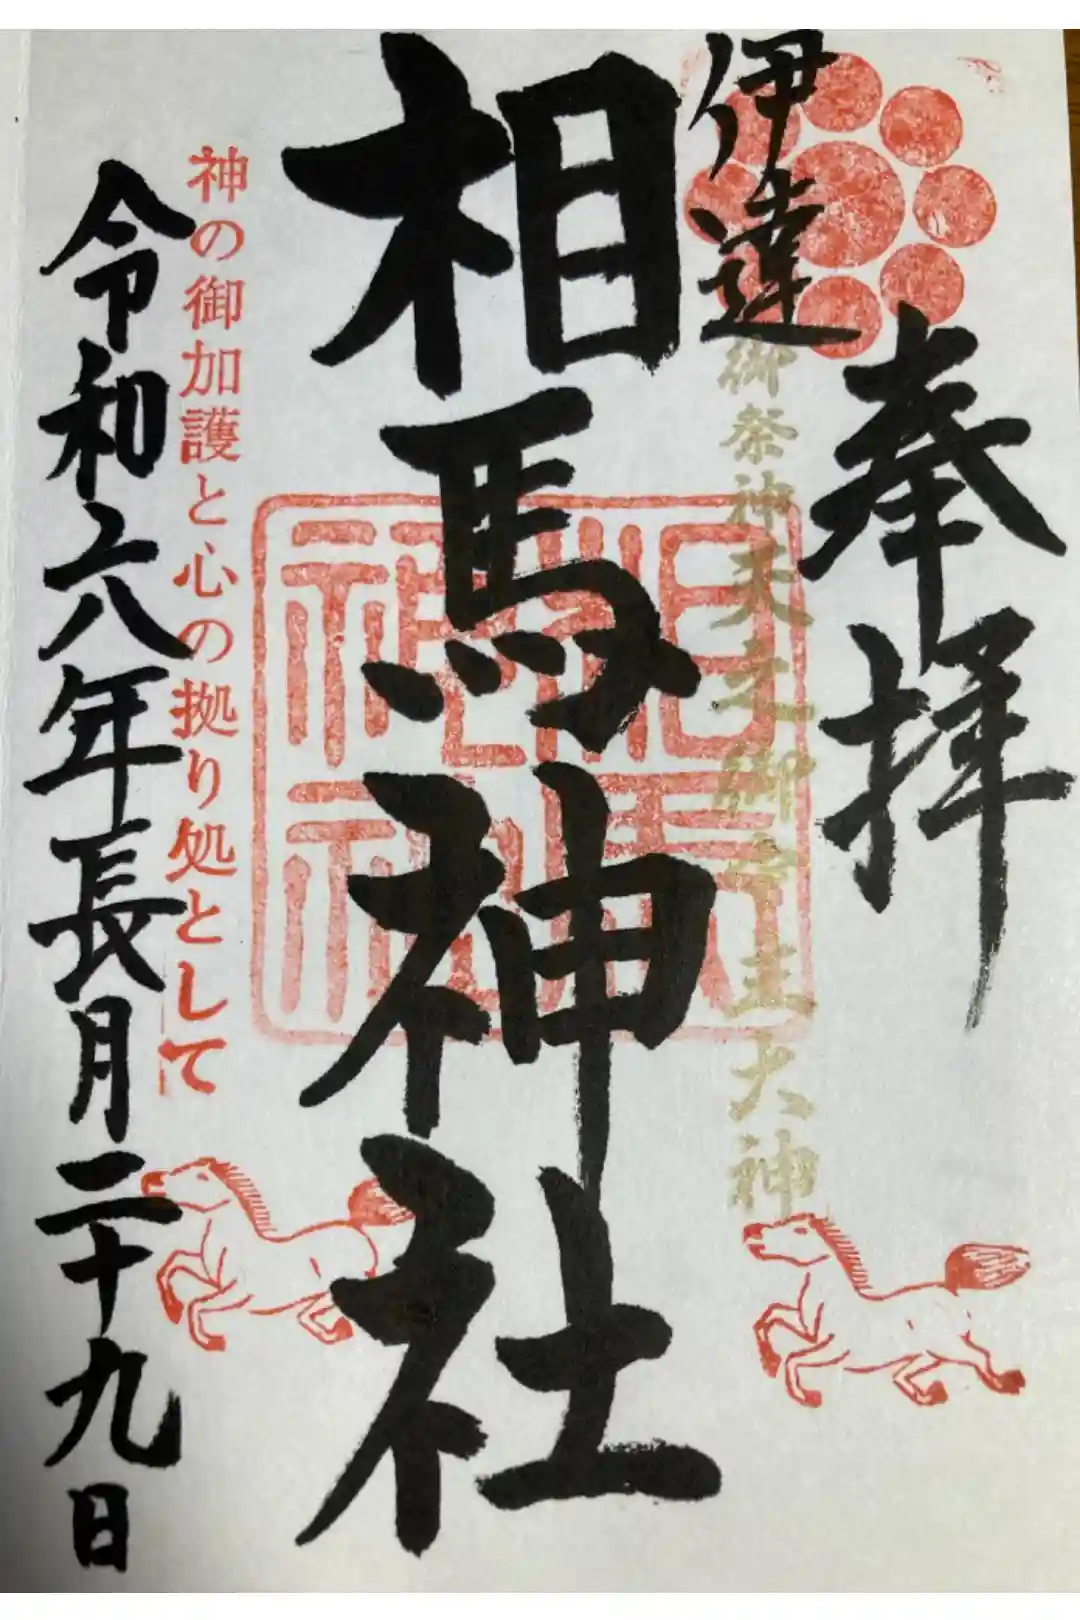 奉拝
伊達
御祭神天之御中主大神
相馬神社
相馬神社
神の御加護と心の拠り処として
令和六年長月二十九日